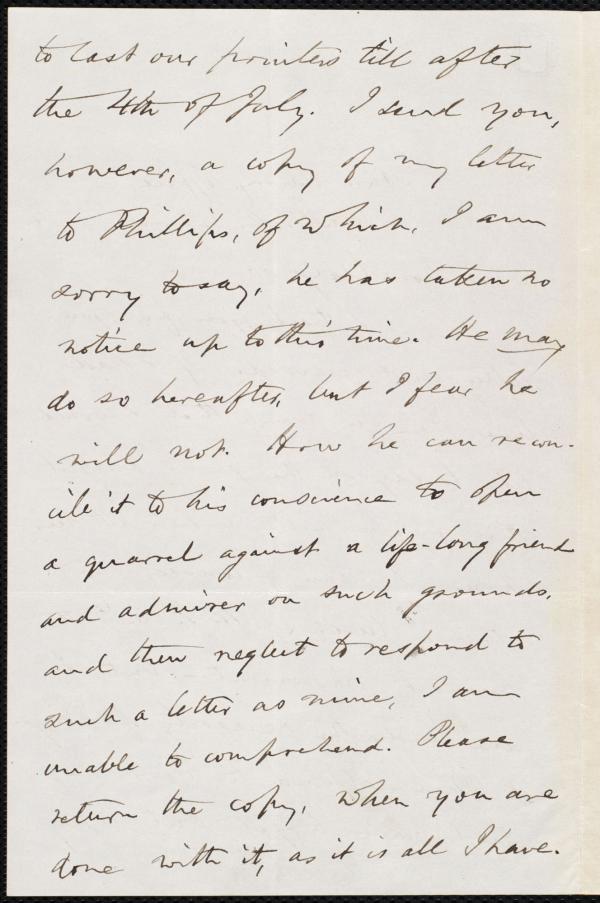 to last our printers till after
the 4th of July. I send you,
however, a copy of my letter
to Phillips, of which, I am
sorry to say, he has taken no
notice up to this time. He may
do so hereafter, but I fear he
will not. How he can recon-
cile it to his conscience to open
a quarrel against a life-long friend
and admirer on such grounds,
and then neglect to respond to
such a letter as mine, I am
unable to comprehend. Please
return the copy, when you are
done with it, as it is all I have.